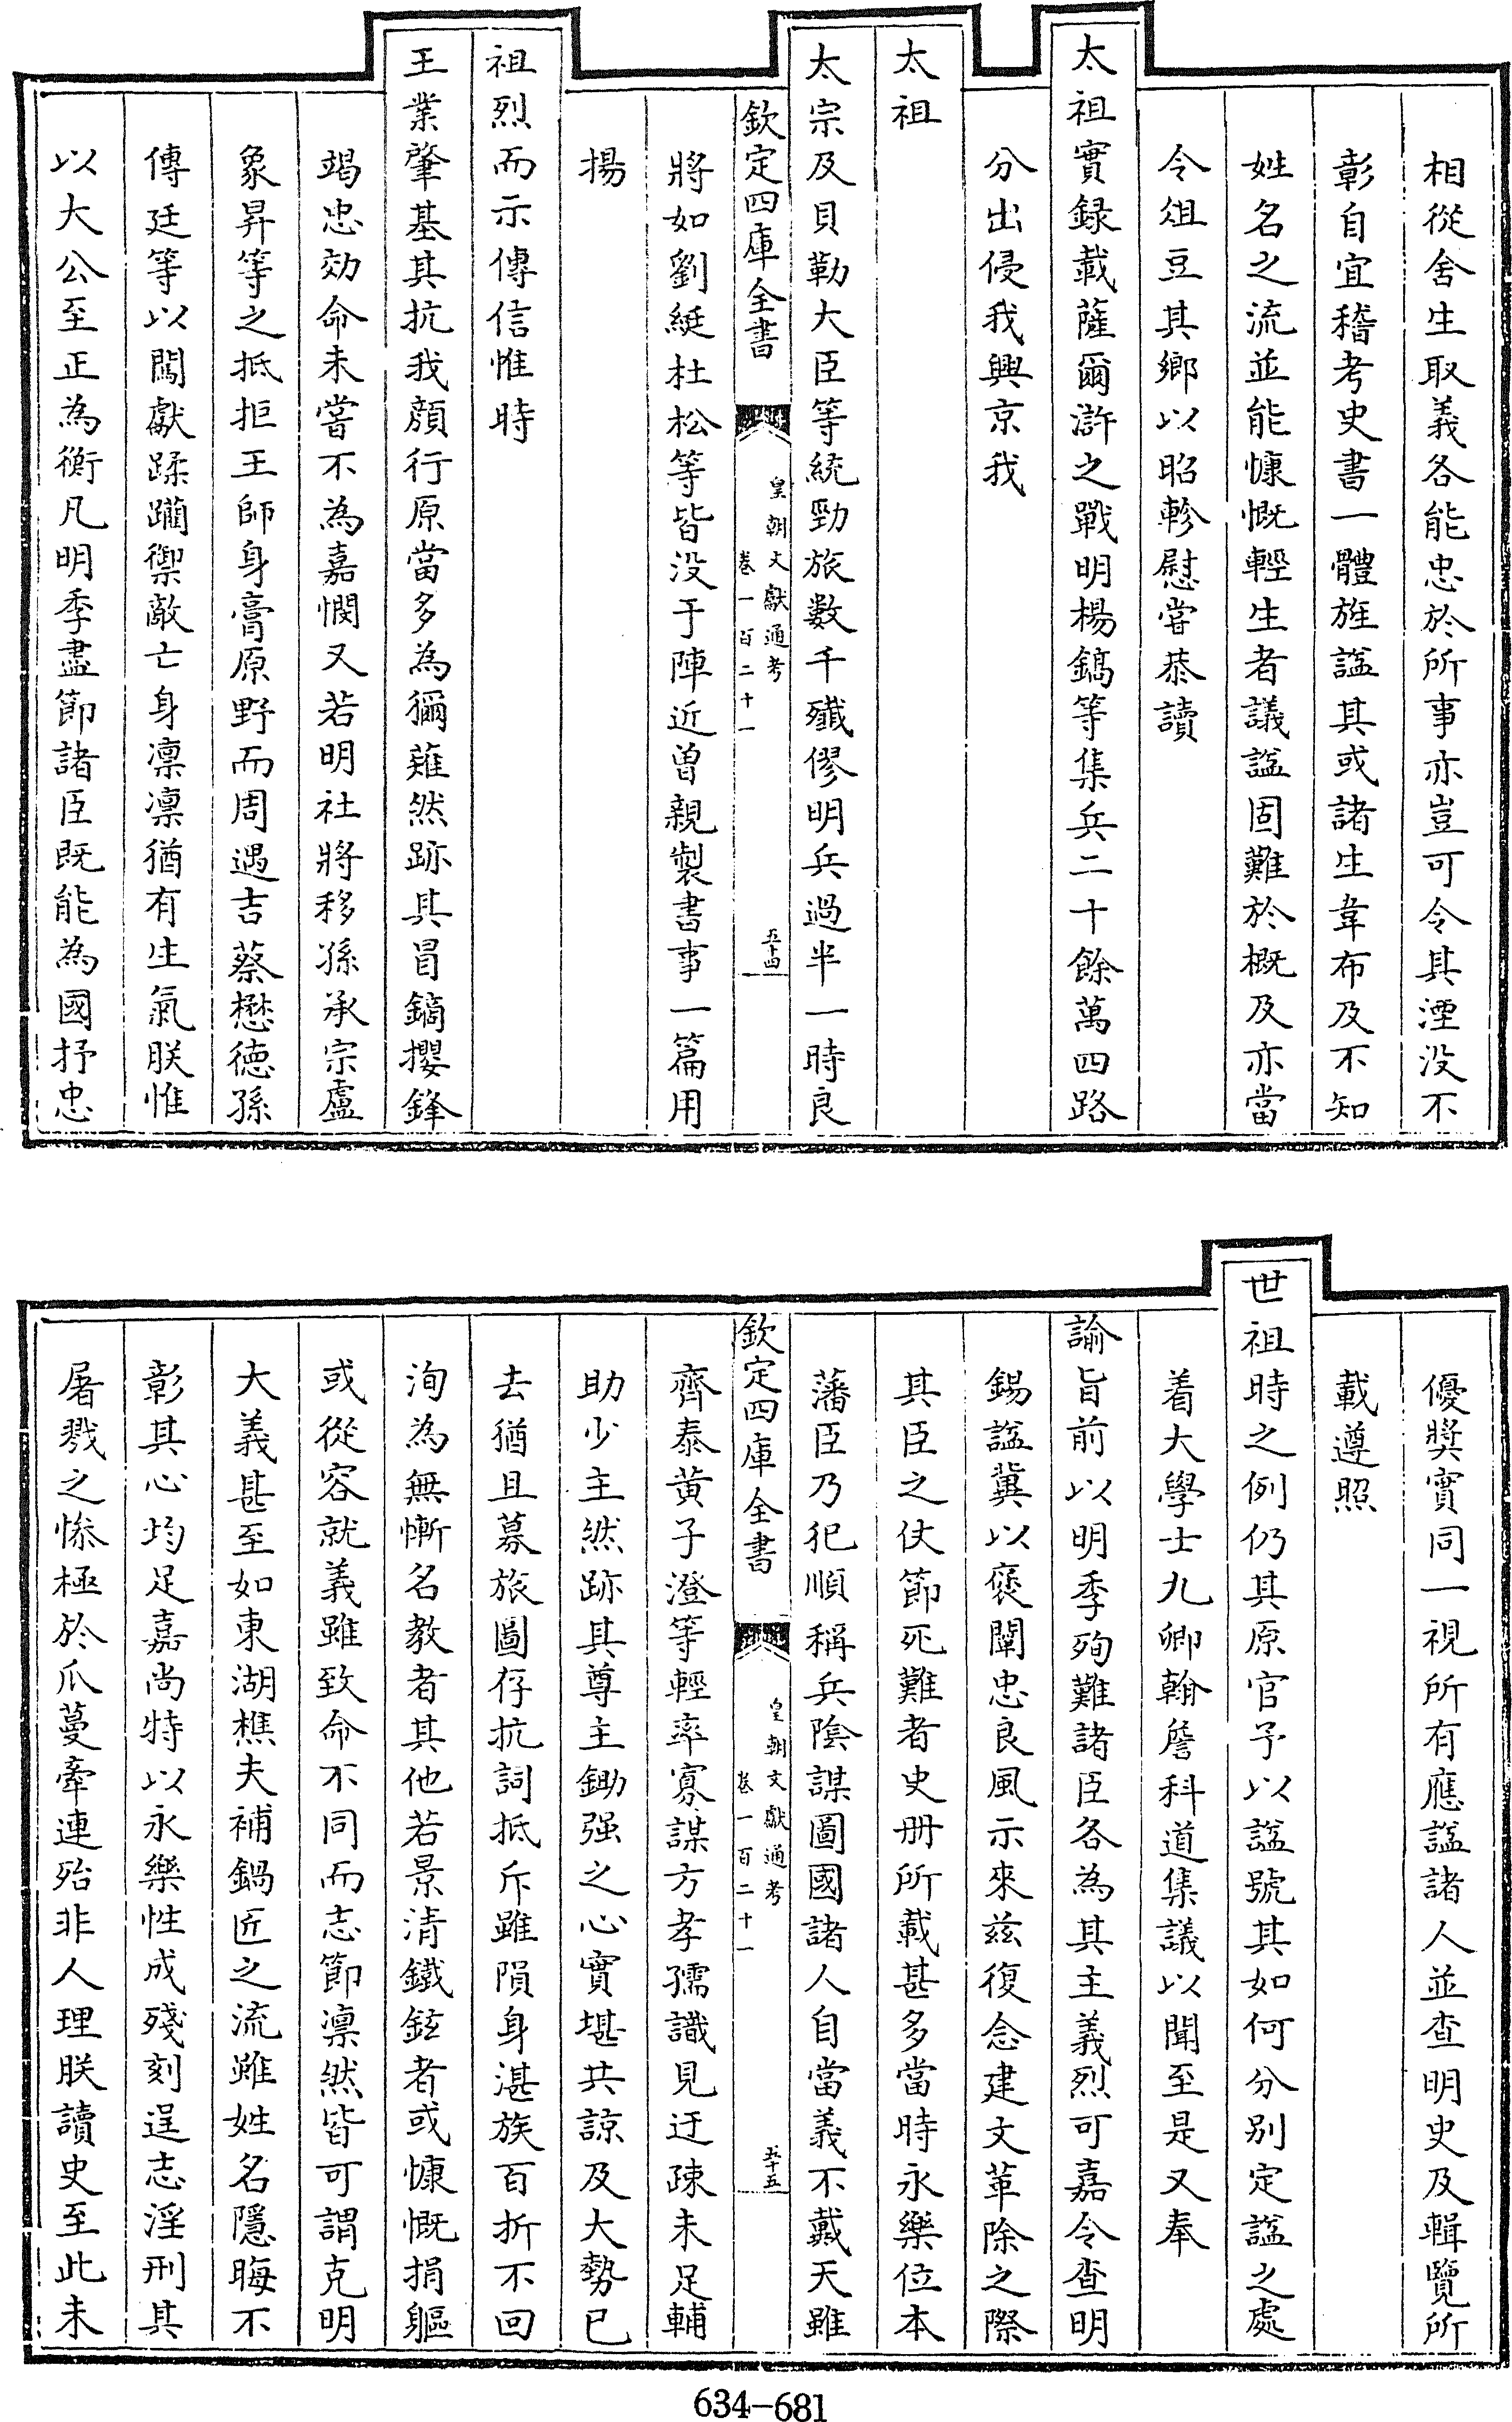 相從舍生取義各能忠於所事亦豈可令其湮没不
彰自宜稽考史書一體旌諡其或諸生韋布及不知
姓名之流並能慷慨輕生者議諡固難於概及亦當
令俎豆其鄉以昭軫慰嘗恭讀
太祖實録載薩爾滸之戰明楊鎬等集兵二十餘萬四路
分出侵我興京我
太祖
太宗及貝勒大臣等統勁旅數千殲僇明兵過半一時良
欽定四庫全書
皇朝文獻通考
卷一百二十一
五十四
將如劉綎杜松等皆没于陣近曾親製書事一篇用
揚
祖烈而示傳信惟時
王業肇基其抗我顔行原當多為獮薙然跡其冒鏑攖鋒
竭忠効命未嘗不為嘉憫又若明社將移孫承宗盧
象昇等之抵拒王師身膏原野而周遇吉蔡懋德孫
傳廷等以闖獻蹂躪禦敵亡身凛凛猶有生氣朕惟
以大公至正為衡凡明季盡節諸臣既能為國抒忠
優獎實同一視所有應諡諸人並查明史及輯覽所
載遵照
世祖時之例仍其原官予以諡號其如何分别定諡之處
着大學士九卿翰詹科道集議以聞至是又奉
諭旨前以明季殉難諸臣各為其主義烈可嘉令查明
錫諡冀以褒闡忠良風示來兹復念建文革除之際
其臣之仗節死難者史册所載甚多當時永樂位本
藩臣乃犯順稱兵陰謀圖國諸人自當義不戴天雖
欽定四庫全書
皇朝文獻通考
卷一百二十一
五十五
齊泰黄子澄等輕率寡謀方孝孺識見迂疎未足輔
助少主然跡其尊主鋤强之心實堪共諒及大勢已
去猶且募旅圖存抗詞抵斥雖隕身湛族百折不回
洵為無慚名教者其他若景清鐵鉉者或慷慨捐軀
或從容就義雖致命不同而志節凛然皆可謂克明
大義甚至如東湖樵夫補鍋匠之流雖姓名隱晦不
彰其心均足嘉尚特以永樂性成殘刻逞志淫刑其
屠戮之慘極於爪蔓牽連殆非人理朕讀史至此未
634-681